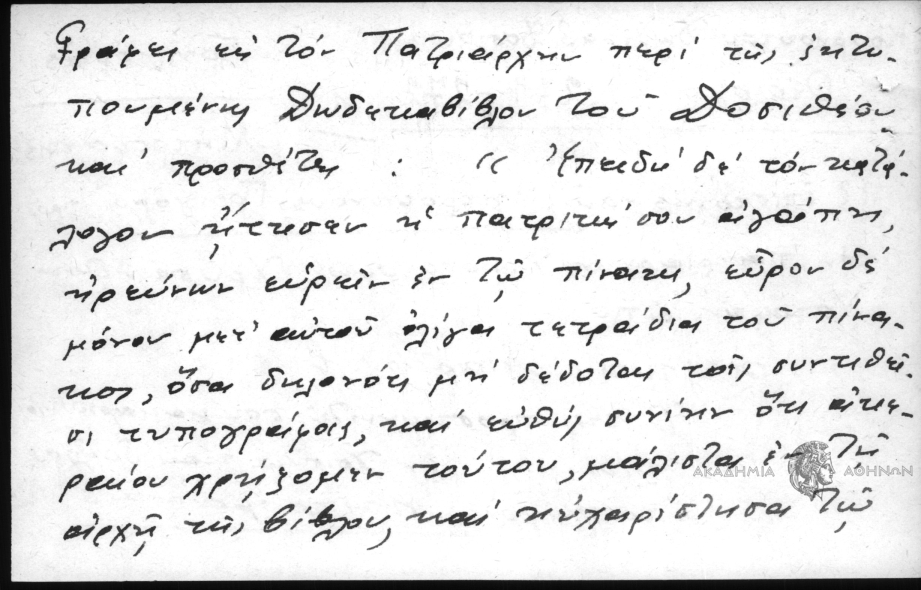 Γράφει εἰς τόν Πατριάρχην περί τῆς ἐκτυ-
πουμένης Δωδεκαβίβλου τοῦ Δοσιθέου
καί προσθέτει : "Ἐπειδή δέ τόν κατά-
λογον ᾔτησεν ἡ πατρική σου ἀγάπη,
ἠρεύνων εὑρεῖν ἐν τῷ πίνακι, εὗρον δέ
μόνον μετ' αὐτοῦ ὀλίγα τετράδια τοῦ πίνα-
κος, ὅσα δηλονότι μή δέδοται τοῖς συντιθεῖ-
σι τυπογράφοις, καί εὐθύς συνῆκα ὅτι
χρῄζομεν τούτου, μάλιστα ἐν τῇ
ἀρχῇ τῆς βίβλου, καί ηὐχαρίστησα τῷ
ΑΚΑΔΗΜΙΑ ΑΘΗΝΩΝ